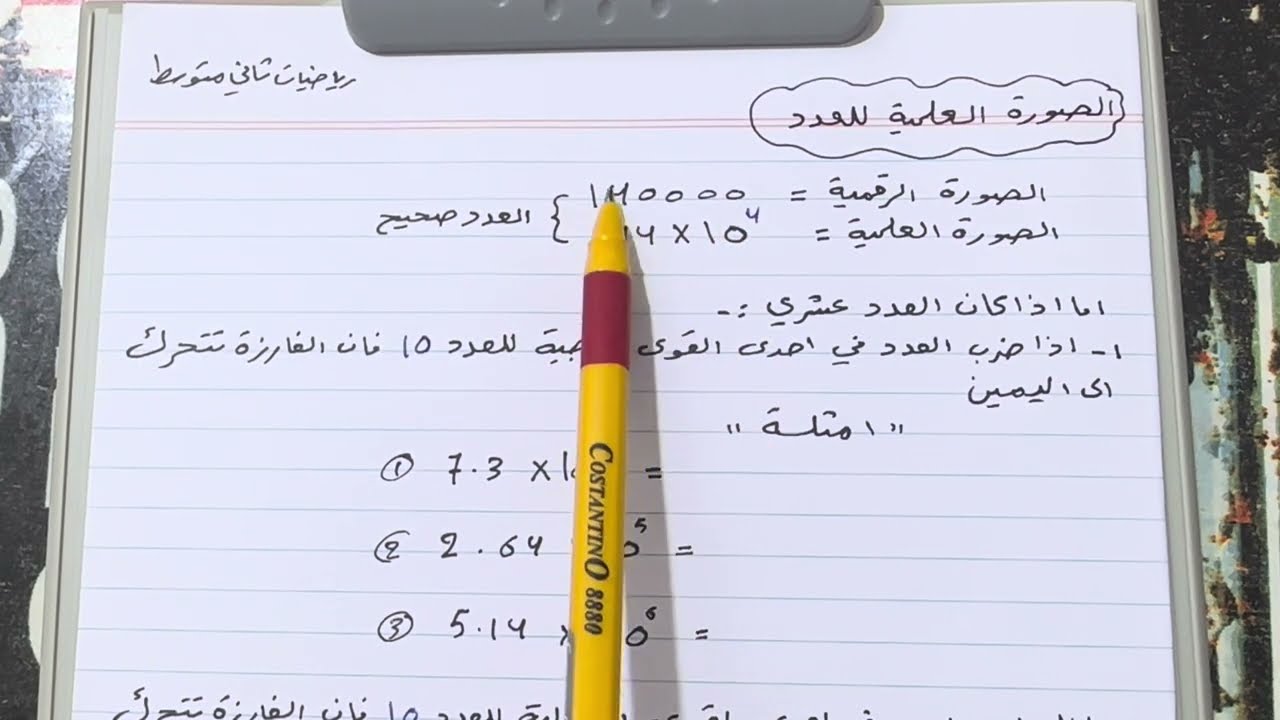 رياضيات ثاني متوسط
الصورة العلمية للعدد
الصورة الرقمية = 140000
الصورة العلمية = 14 X 10⁴
العدد صحيح
اما اذا كان العدد عشري :-
1- اذا ضرب العدد في احدى القوى للعدد 10 فان الفارزة تتحرك
الى اليمين
" امثلة "
① 7.3 X 1 =
② 2.64 0⁵ =
③ 5.14 x 0⁶ =
للعدد 10 فان الفارزة تتحرك
COSTANTINO 8880